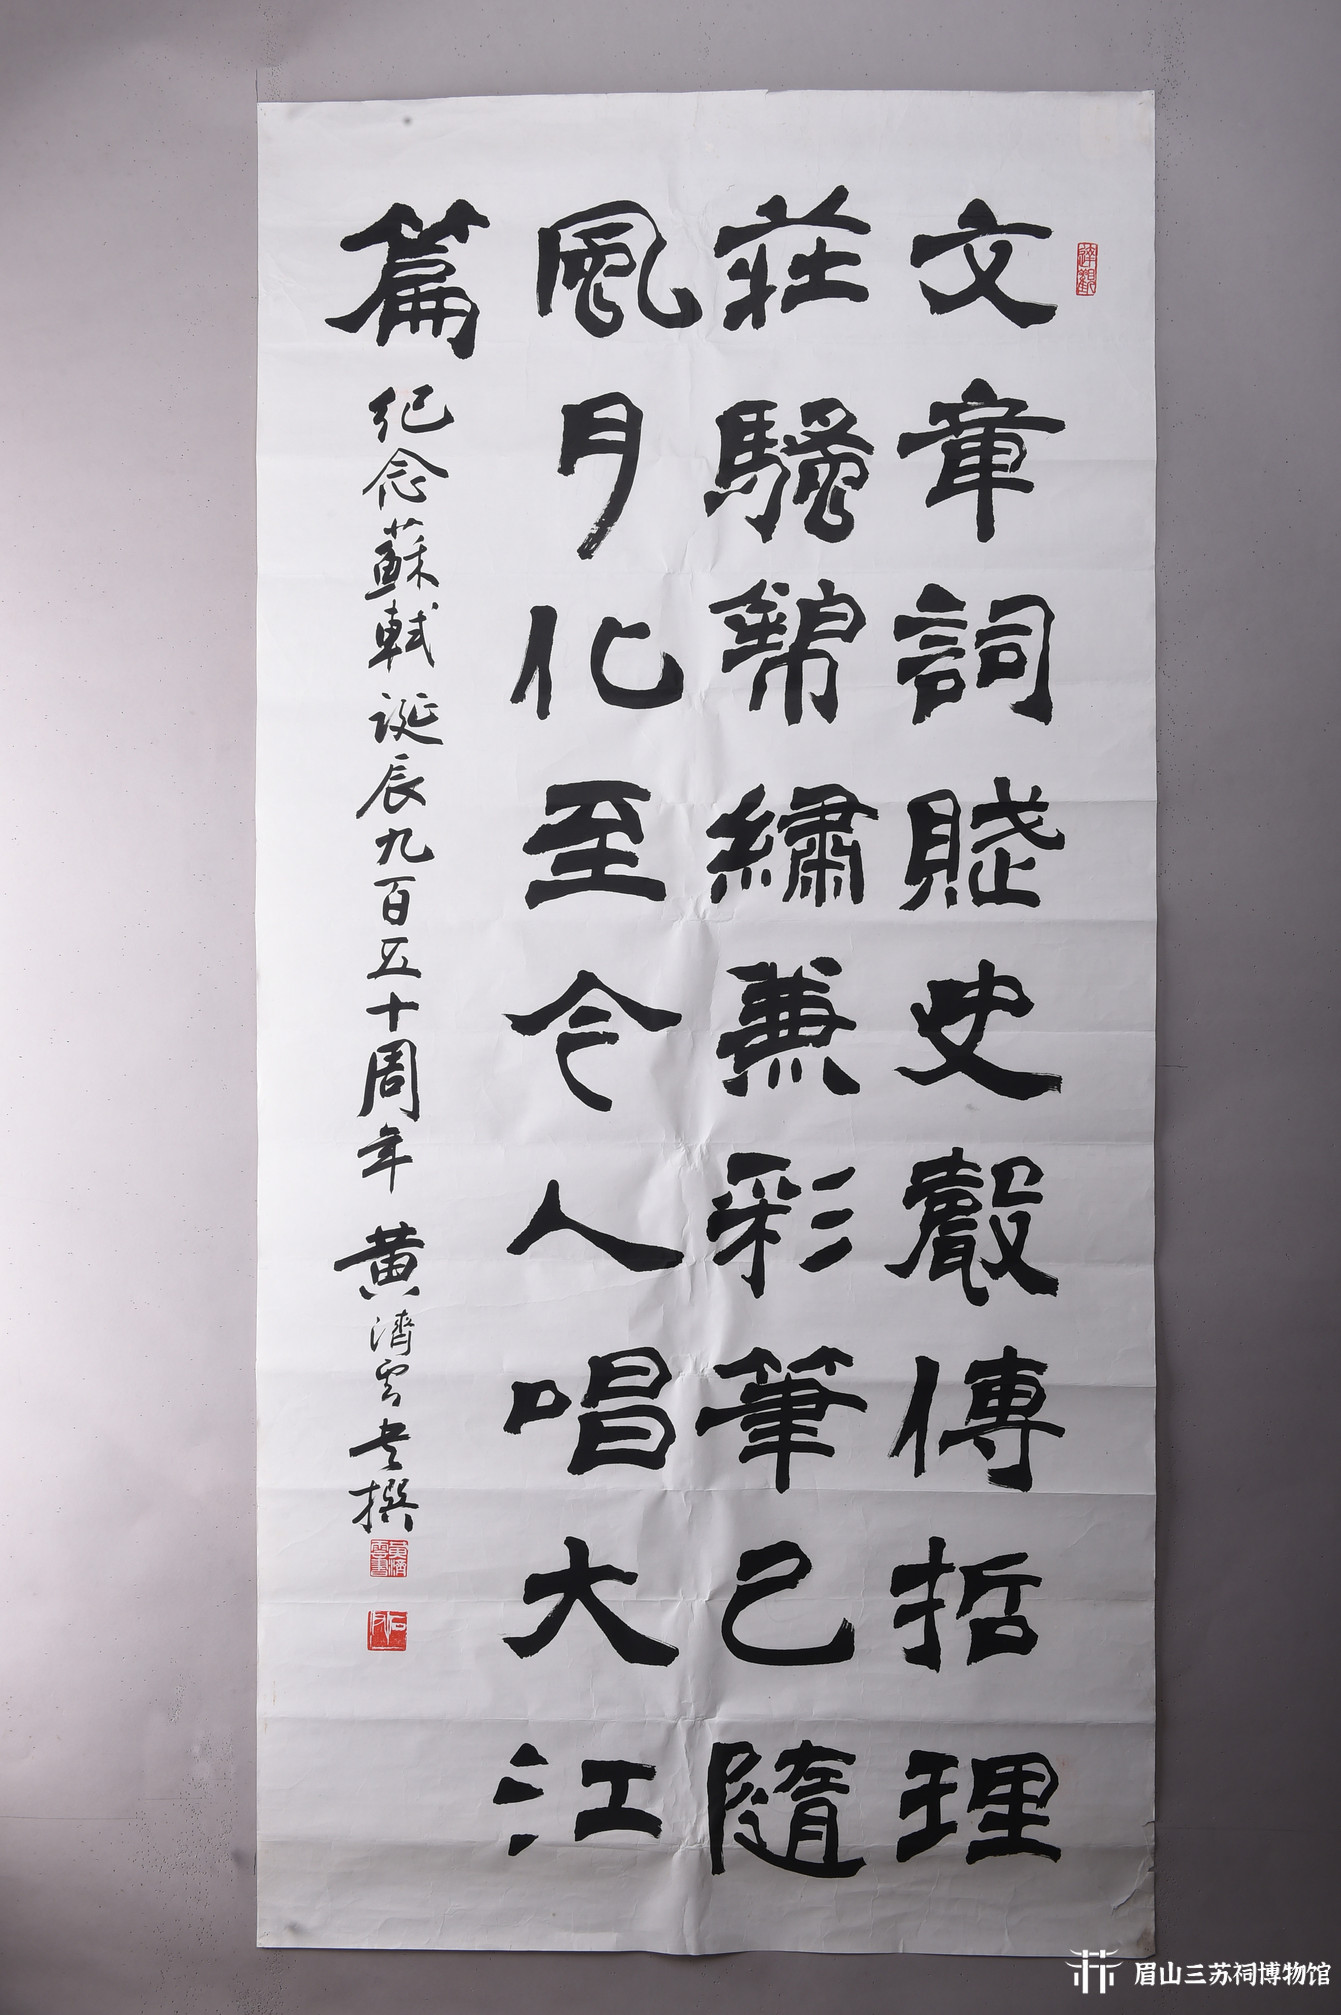 文章詞賦史聲傳哲理
莊騷錦繡兼彩筆已隨
風月化至今人唱大江
篇
纪念蘇軾诞辰九百五十周年 黄濟雲書撰
眉山三苏祠博物馆